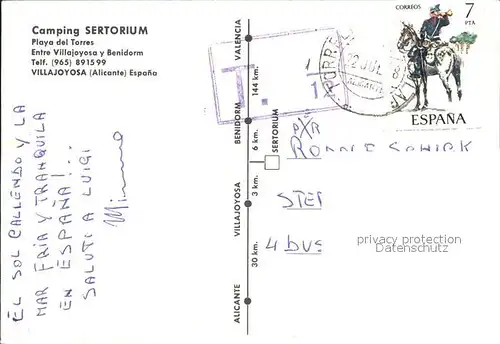 Camping SERTORIUM
Playa del Torres
Entre Villajoyosa y Benidorm
Telf. (965) 891599
VILLAJOYOSA (Alicante) España
EL SOL CALLENDO Y LA
MAR FRIA Y TRANQUILA
EN ESPAÑA!...
SALUTI A LUIGI
VALENCIA
144 km.
BENIDORM
6 km.
SERTORIUM
3 km.
VILLAJOYOSA
30 km.
ALICANTE
T.
1
1
CORREOS
7
PTA
ESPAÑA
PXR
STEI
4 DUS
privacy protection
Datenschutz